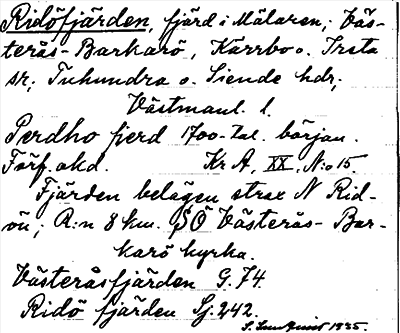 Ridöfjärden, fjärd i Mälaren; Väs-
terås-Barkarö, Kärrbo o. Irsta
sr; Tuhundra o. Siende hdr;
Västmanl. l.
Perdho fjerd 1700-tal. början.
Förf. okd. Kr A, XX, N:o 15.
Fjärden belägen strax N Rid-
ön; R:n 8 km. SÖ Västerås-Bar-
karö kyrka.
Västeråsfjärden G. 74.
Ridö fjärden Sj. 242.
S. Lundquist 1925.